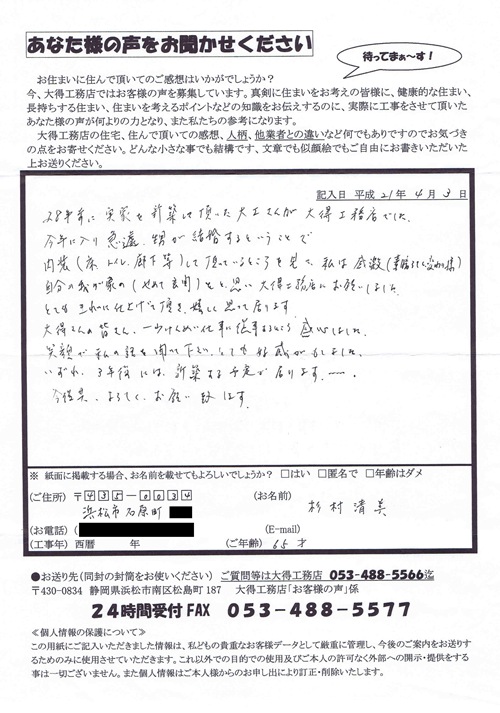 あなた様の声をお聞かせください
待ってまぁ~す!
お住まいに住んで頂いてのご感想はいかがでしょうか?
今、大得工務店ではお客様の声を募集しています。真剣に住まいをお考えの皆様に、健康的な住まい、
長持ちする住まい、住まいを考えるポイントなどの知識をお伝えするのに、実際に工事をさせて頂いた
あなた様の声が何よりの力となり、また私たちの参考になります。
大得工務店の住宅、住んで頂いての感想、人柄、他業者との違いなど何でもありですのでお気づき
の点をお寄せください。どんな小さな事でも結構です、文章でも似顔絵でもご自由にお書きいただいた
上お送りください。
記入日 平成 21年 4月 3日
28年前に 実家を 新築して頂いた 大工さんが 大得工務店でした。
今年に入り 急遽、甥が 結婚するということで
内装(床、トイレ、廊下等)して頂いているところを見て、私は 感激(素晴らしく変わった様)
自分の我が家の(せめて玄関)をと思い 大得工務店にお願いしました。
とても きれいに仕上げて頂き、嬉しく思って居ります。
大得さんの皆さん、一生けんめい仕事に従事するという 感心しました。
笑顔が 私の話を聞いて下さい、とても 好感がもてました。
いずれ、3年後には、新築する予定が居ります。
今後共、よろしく お願い 致します。
※ 紙面に掲載する場合、お名前を載せてもよろしいでしょうか? □はい □匿名で □年齢はダメ
(ご住所) 〒435-0034 (お名前)
浜松市石原町 杉村清美
(お電話) ( (E-mail)
(工事年) 西暦 年 (ご年齢) 65才
●お送り先(同封の封筒をお使いください) ご質問等は大得工務店 053-488-5566迄
〒430-0834 静岡県浜松市南区松島町187 大得工務店「お客様の声」係
24時間受付FAX 053-488-5577
≪個人情報の保護について≫
この用紙にご記入いただきました情報は、私どもの貴重なお客様データとして厳重に管理し、今後のご案内をお送りす
るためのみに使用させていただきます。これ以外での目的での使用及びご本人の許可なく外部への開示・提供をする
事は一切ございません。また個人情報はご本人様からのお申し出により訂正・削除いたします。